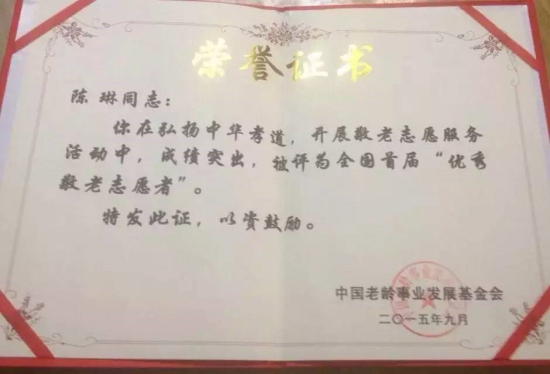 荣誉证书
陈琳同志：
你在弘扬中华孝道，开展敬老志愿服务
活动中，成绩突出，被评为全国首届“优秀
敬老志愿者”。
特发此证，以资鼓励。
中国老龄事业发展基金会
二〇一五年九月